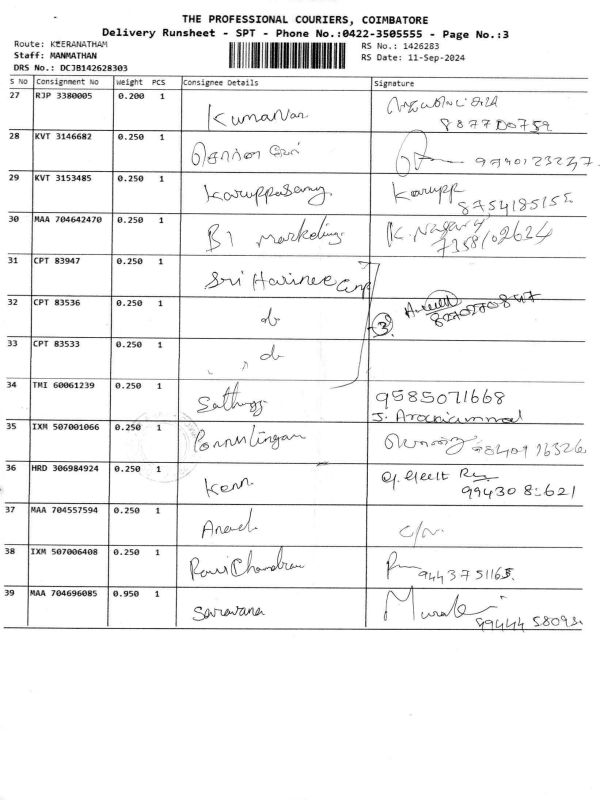 THE PROFESSIONAL COURIERS, COIMBATORE
Delivery Runsheet - SPT - Phone No.:0422-3505555 - Page No.:3
Route: KEERANATHAM
Staff: MANMATHAN
DRS No.: DCJB142628303
RS No.: 1426283
RS Date: 11-Sep-2024
S No Consignment No Weight PCS Consignee Details Signature
27 RJP 3380005 0.200 1
28 KVT 3146682 0.250 1
29 KVT 3153485 0.250 1 Karuppasamy Karupp
30 MAA 704642470 0.250 1 B1 Marketing K. Nagaraj
7358102634
31 CPT 83947 0.250 1 Sri Harinee
32 CPT 83536 0.250 1 do
33 CPT 83533 0.250 1 do
34 TMI 60061239 0.250 1 9585071668
J. Arockiammal
35 IXM 507001066 0.250 1 Ponnulingam
36 HRD 306984924 0.250 1
37 MAA 704557594 0.250 1 Anand
38 IXM 507006408 0.250 1 Ravi Chandran
39 MAA 704696085 0.950 1 Saravana Murali